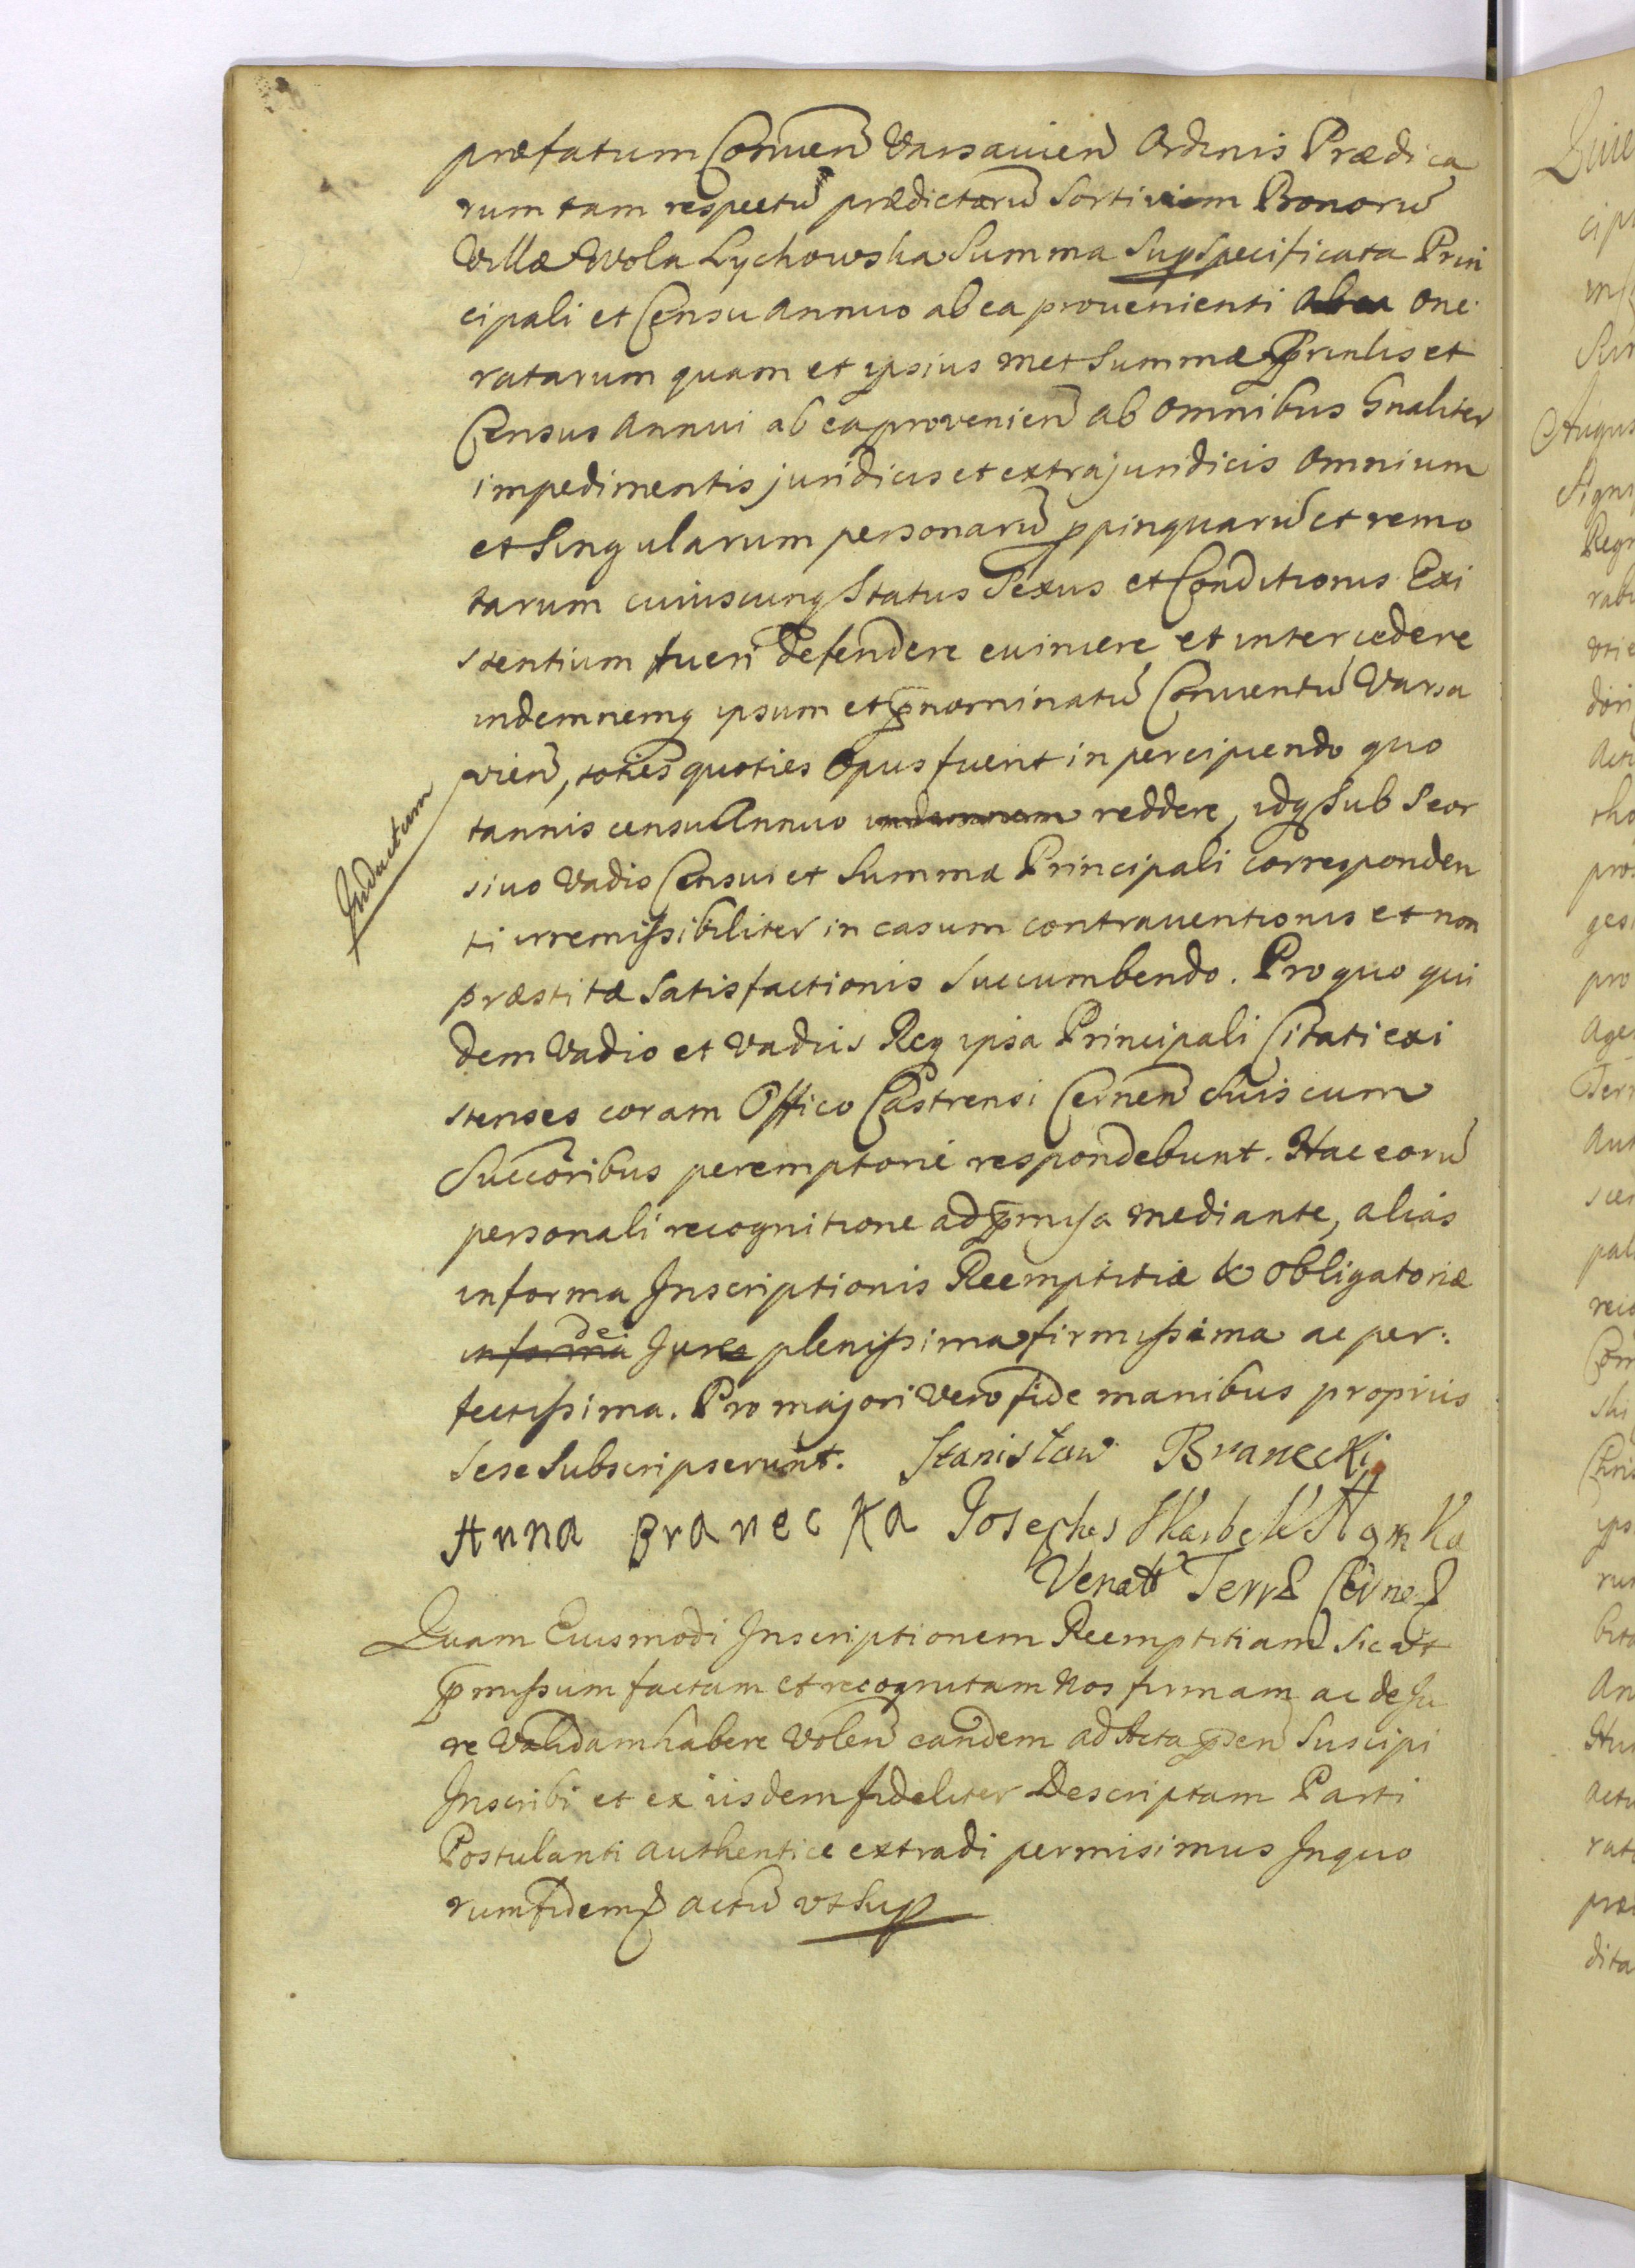 præfatum Conuen̄ Varsauien̄ Ordinis Prædica
rum tam respectū prædictarū Sortivim Bonorū
Villæ Wola Lychowska Summa Sup̱specificata Prin
cipali et Censu Annuo ab ea prouenienti ab ea one
ratarum quam et ipsius met Summæ Prinlis et
Census Annui ab ea provenien̄ ab Omnibus Gnaliter
impedimentis juridicis et extrajuridicis Omnium
et Singularum personarū ꝓpinquarū et remo
tarum cuiuscunq Status Sexus et Conditionis Exi
stentium tueri defendere euincere et intercedere
indemnemq ipsum et p̄nominatū Conuentū Varsa
vien̄, toties quoties Opus fuerit in percipiendo quo
tannis censu Annuo indemnem reddere, idq Sub Seor
siuo Vadio Censui et Summæ Principali corresponden
ti irremissibiliter in casum contrauentionis et non
præstitæ Satisfactionis Succumbendo. Pro quo qui
dem Vadio et Vadiis Req ipsa Principali Citati exi
stenses coram Offico Castrensi Cernen̄ Suis cum
Succoribus peremptorie respondebunt. Hac eorū
personali recognitione ad p̄missa mediante, alias
in forma Inscriptionis Reemptitiæ & Obligatoriæ
in forma de Jure plenissima firmissima ac per:
fectissima. Pro majori vero fide manibus propriis
Sese Subscripserunt. Stanisław Branecki
Anna Branecka Josephus Skarbek
Venatt Terræ Cern
Inductum
Quam Eiusmodi Inscriptionem Reemptitiam Sic ut
p̄missum factam et recognitam Nos firmam ac de Ju
re Validam habere Volen̄ eandem ad Acta p̄sen̄ Suscipi
Inscribi et ex iisdem fideliter Descriptam Parti
Postulanti authentice extradi permisimus In quo
rum fidem Actū ut Sup̱